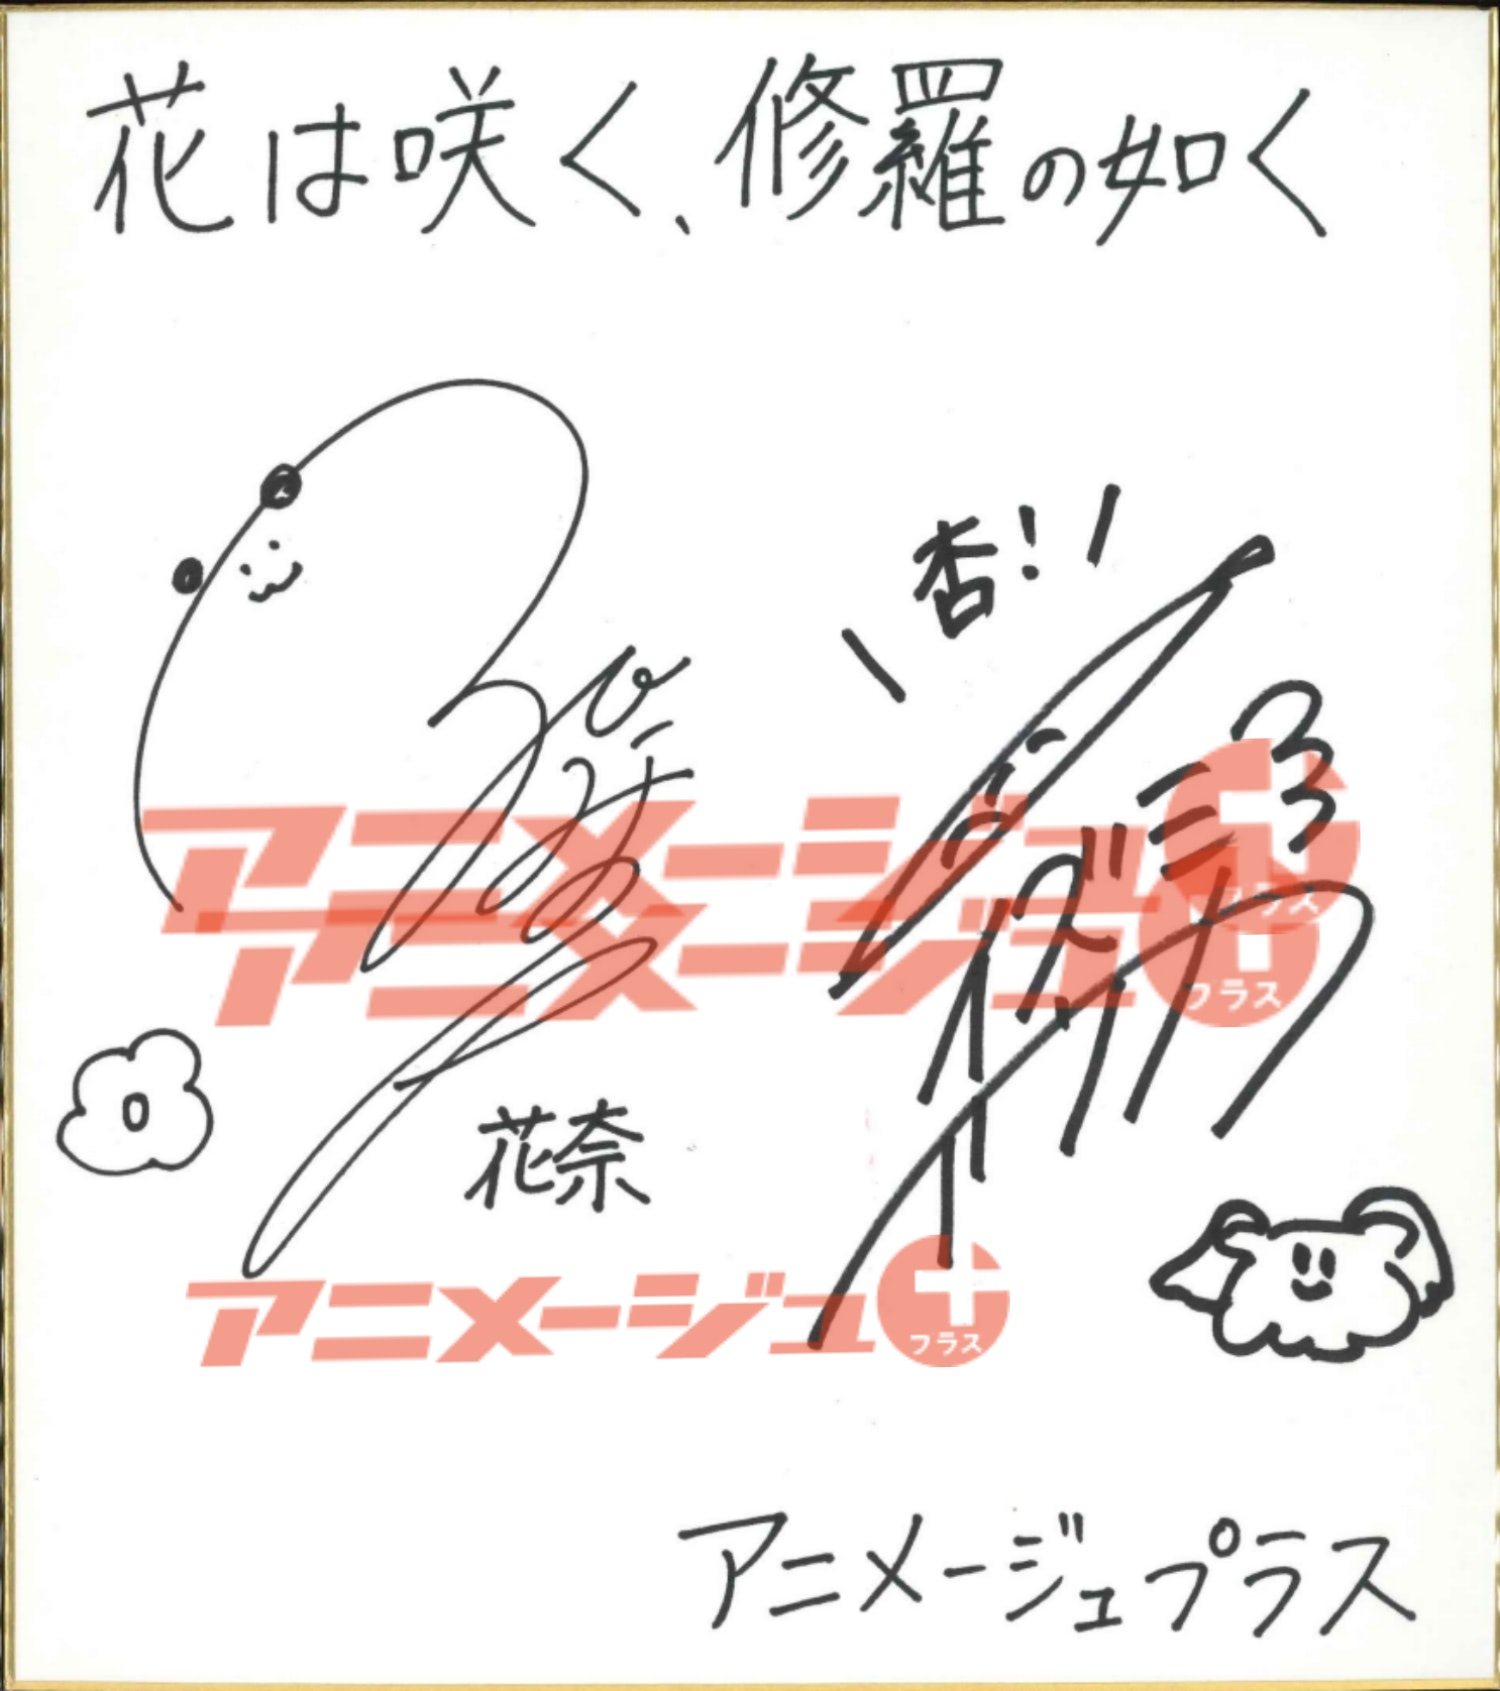 花は咲く、修羅の如く
杏!
アニメージュ
プラス
アニメージュ
プラス
花奈
アニメージュ
プラス
アニメージュプラス